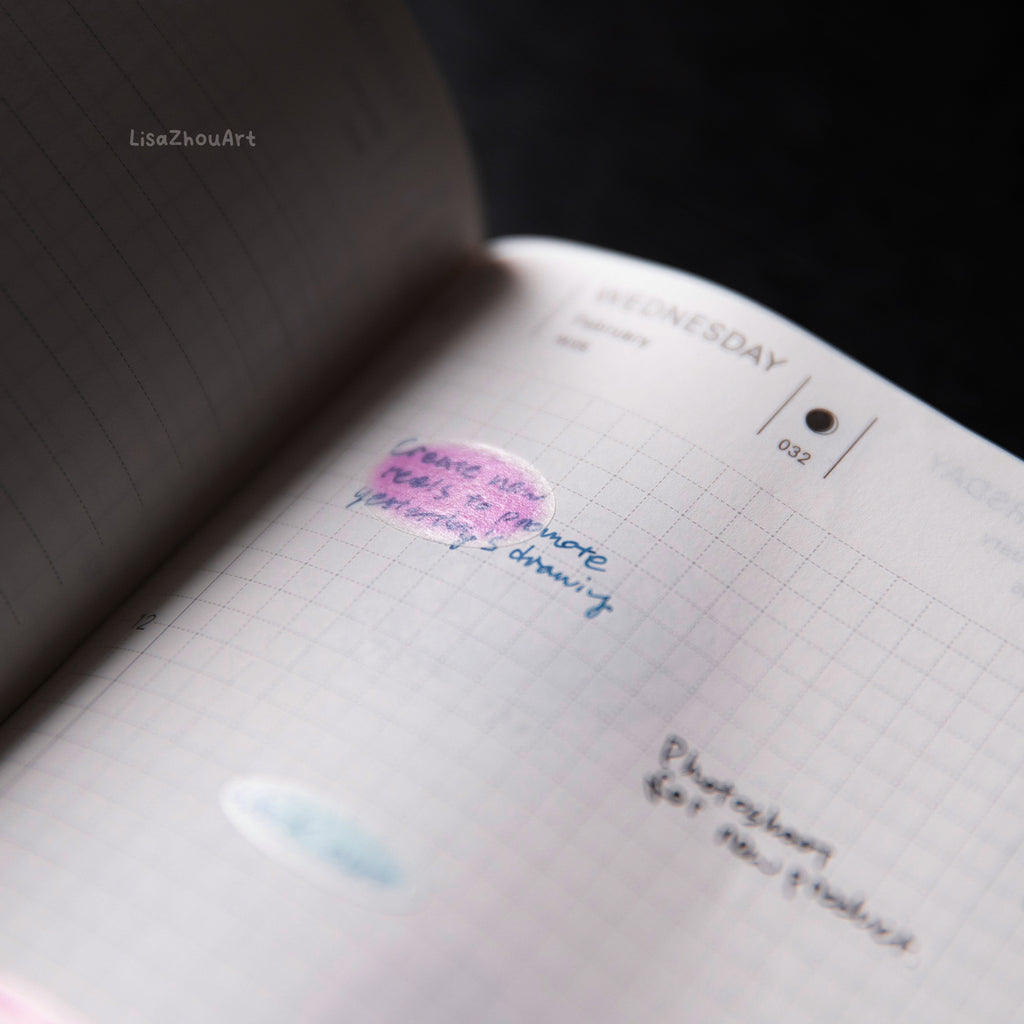 LisaZhouArt
WEDNESDAY
February
032
Create new
reels to promote
yesterday's drawing
12
Photoshoot
for new product